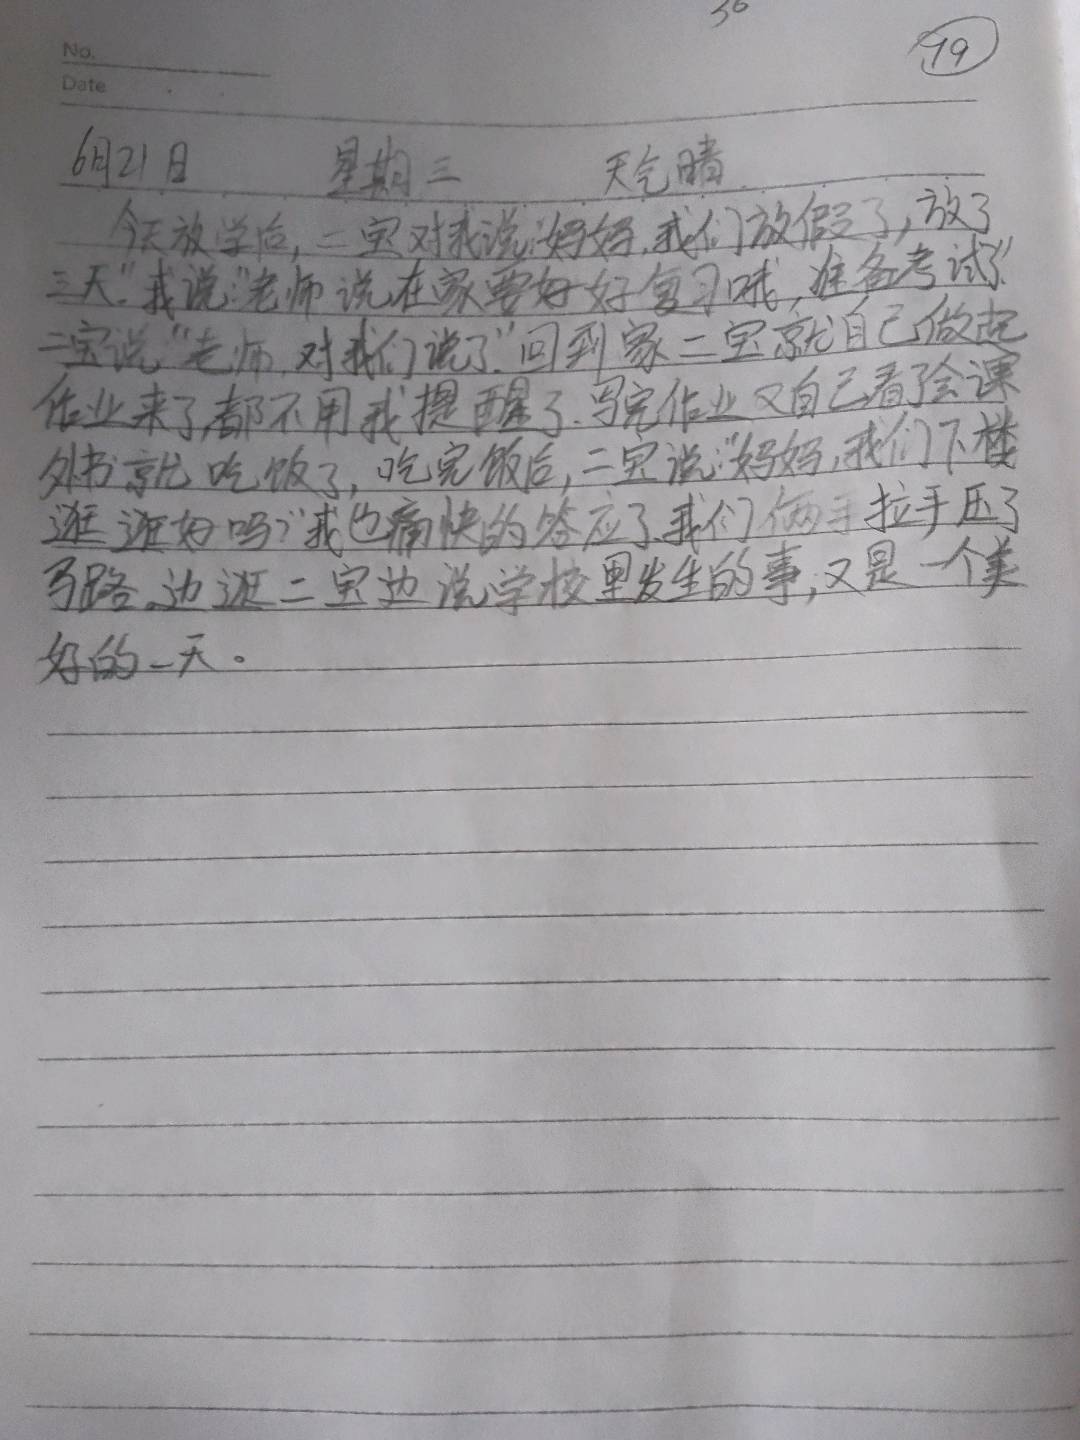 36
19
No.
Date
6月21日 星期三 天气晴
今天放学后,二宝对我说:"妈妈,我们放假了,放了
三天"我说:"老师说在家要好好复习哦,准备考试了"
二宝说"老师对我们说了"回到家二宝就自己做起
作业来了,都不用我提醒了.写完作业又自己看了会课
外书就吃饭了,吃完饭后,二宝说:"妈妈,我们下楼
逛逛好吗?"我也痛快的答应了,我们俩手拉手压了
马路。边逛二宝边说学校里发生的事,又是一个美
好的一天。